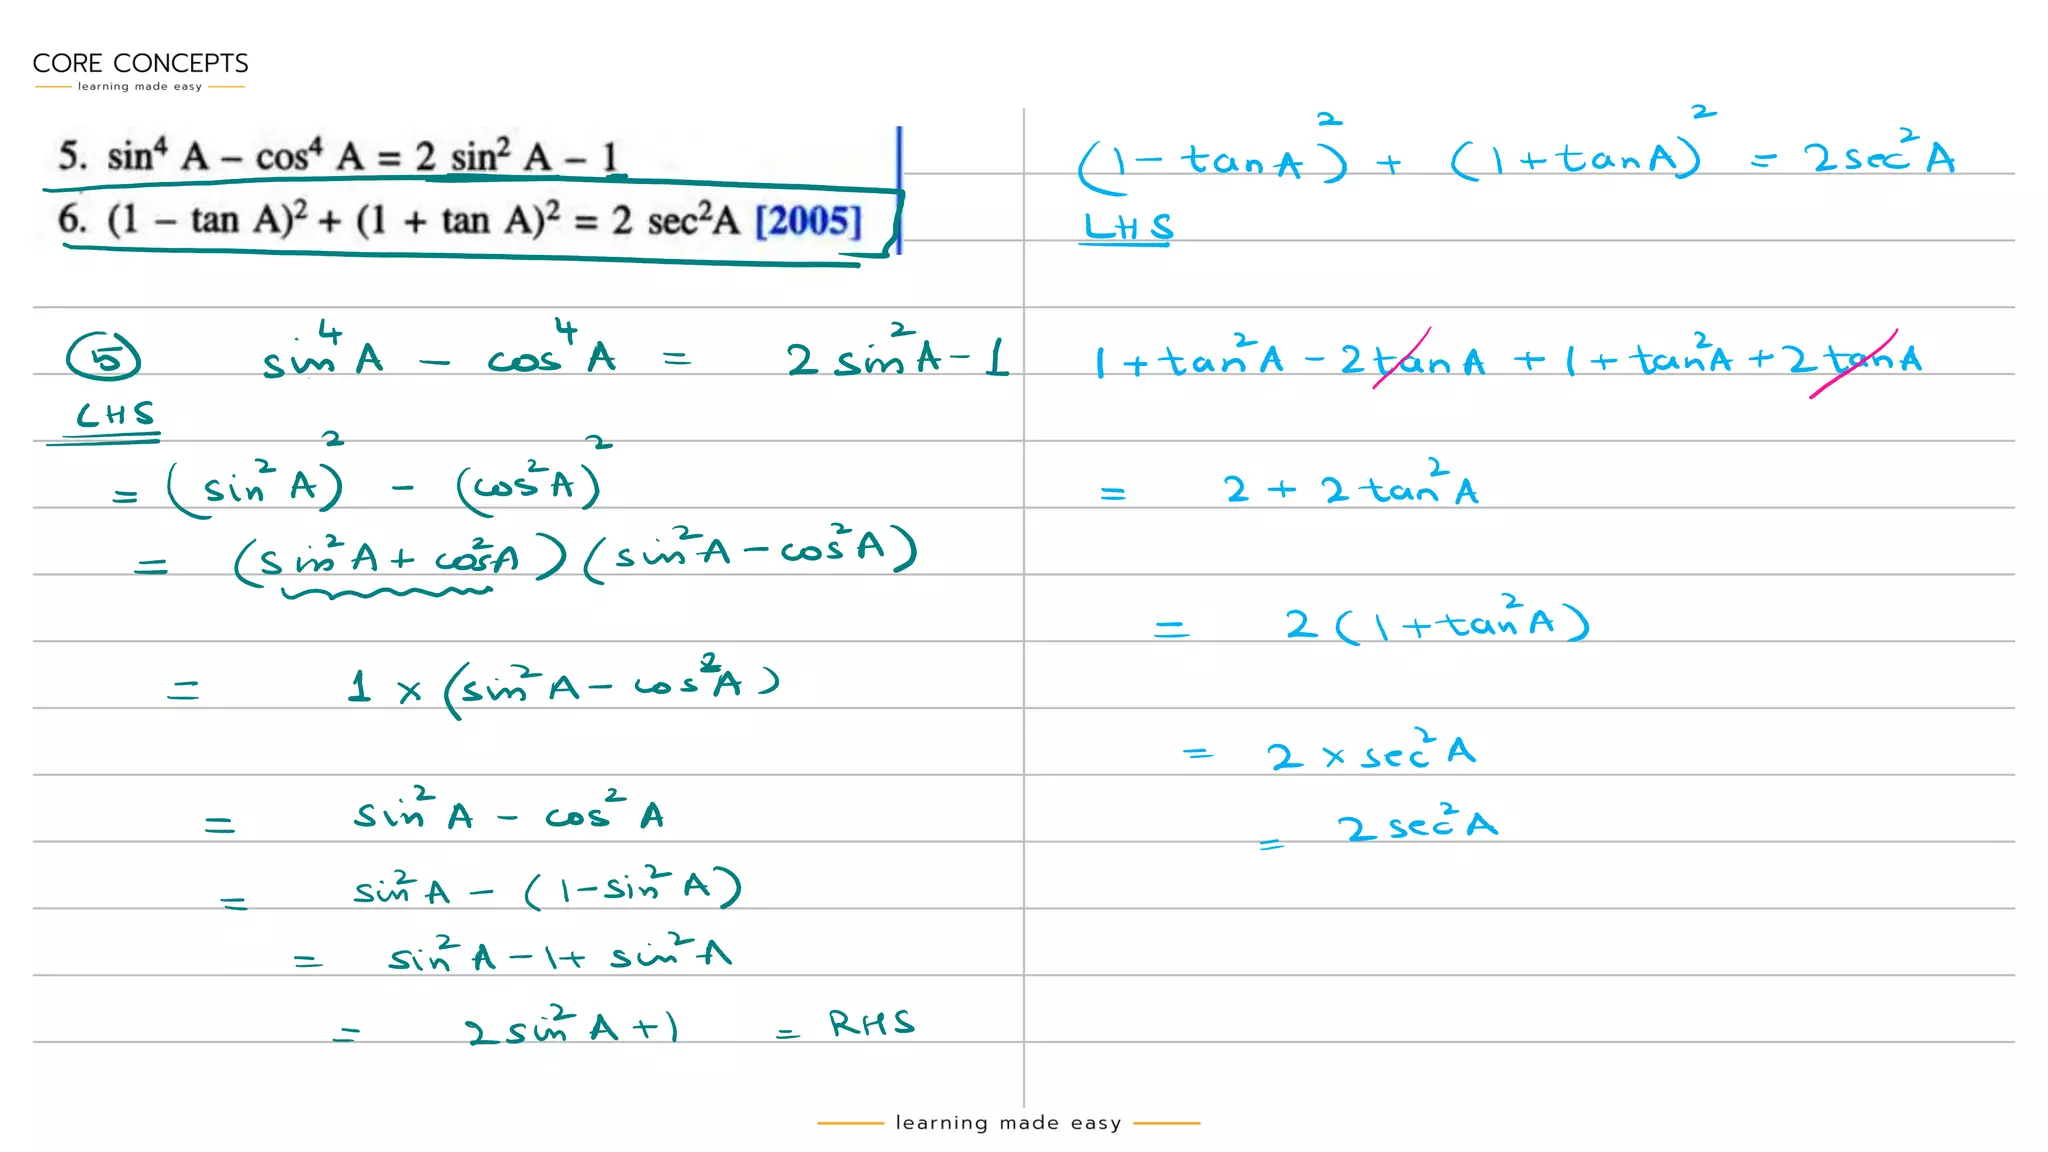 CORE CONCEPTS
learning made easy
5. sin⁴ A – cos⁴ A = 2 sin² A – 1
6. (1 – tan A)² + (1 + tan A)² = 2 sec²A [2005]
⑤ sin⁴ A – cos⁴ A = 2 sin² A – 1
LHS
= (sin² A)² – (cos² A)²
= (sin² A + cos² A) (sin² A – cos² A)
= 1 × (sin² A – cos² A)
= sin² A – cos² A
= sin² A – (1 – sin² A)
= sin² A – 1 + sin² A
= 2 sin² A + 1 = RHS
(1 – tan A)² + (1 + tan A)² = 2 sec² A
LHS
1 + tan² A – 2 tan A + 1 + tan² A + 2 tan A
= 2 + 2 tan² A
= 2 (1 + tan² A)
= 2 × sec² A
= 2 sec² A
learning made easy